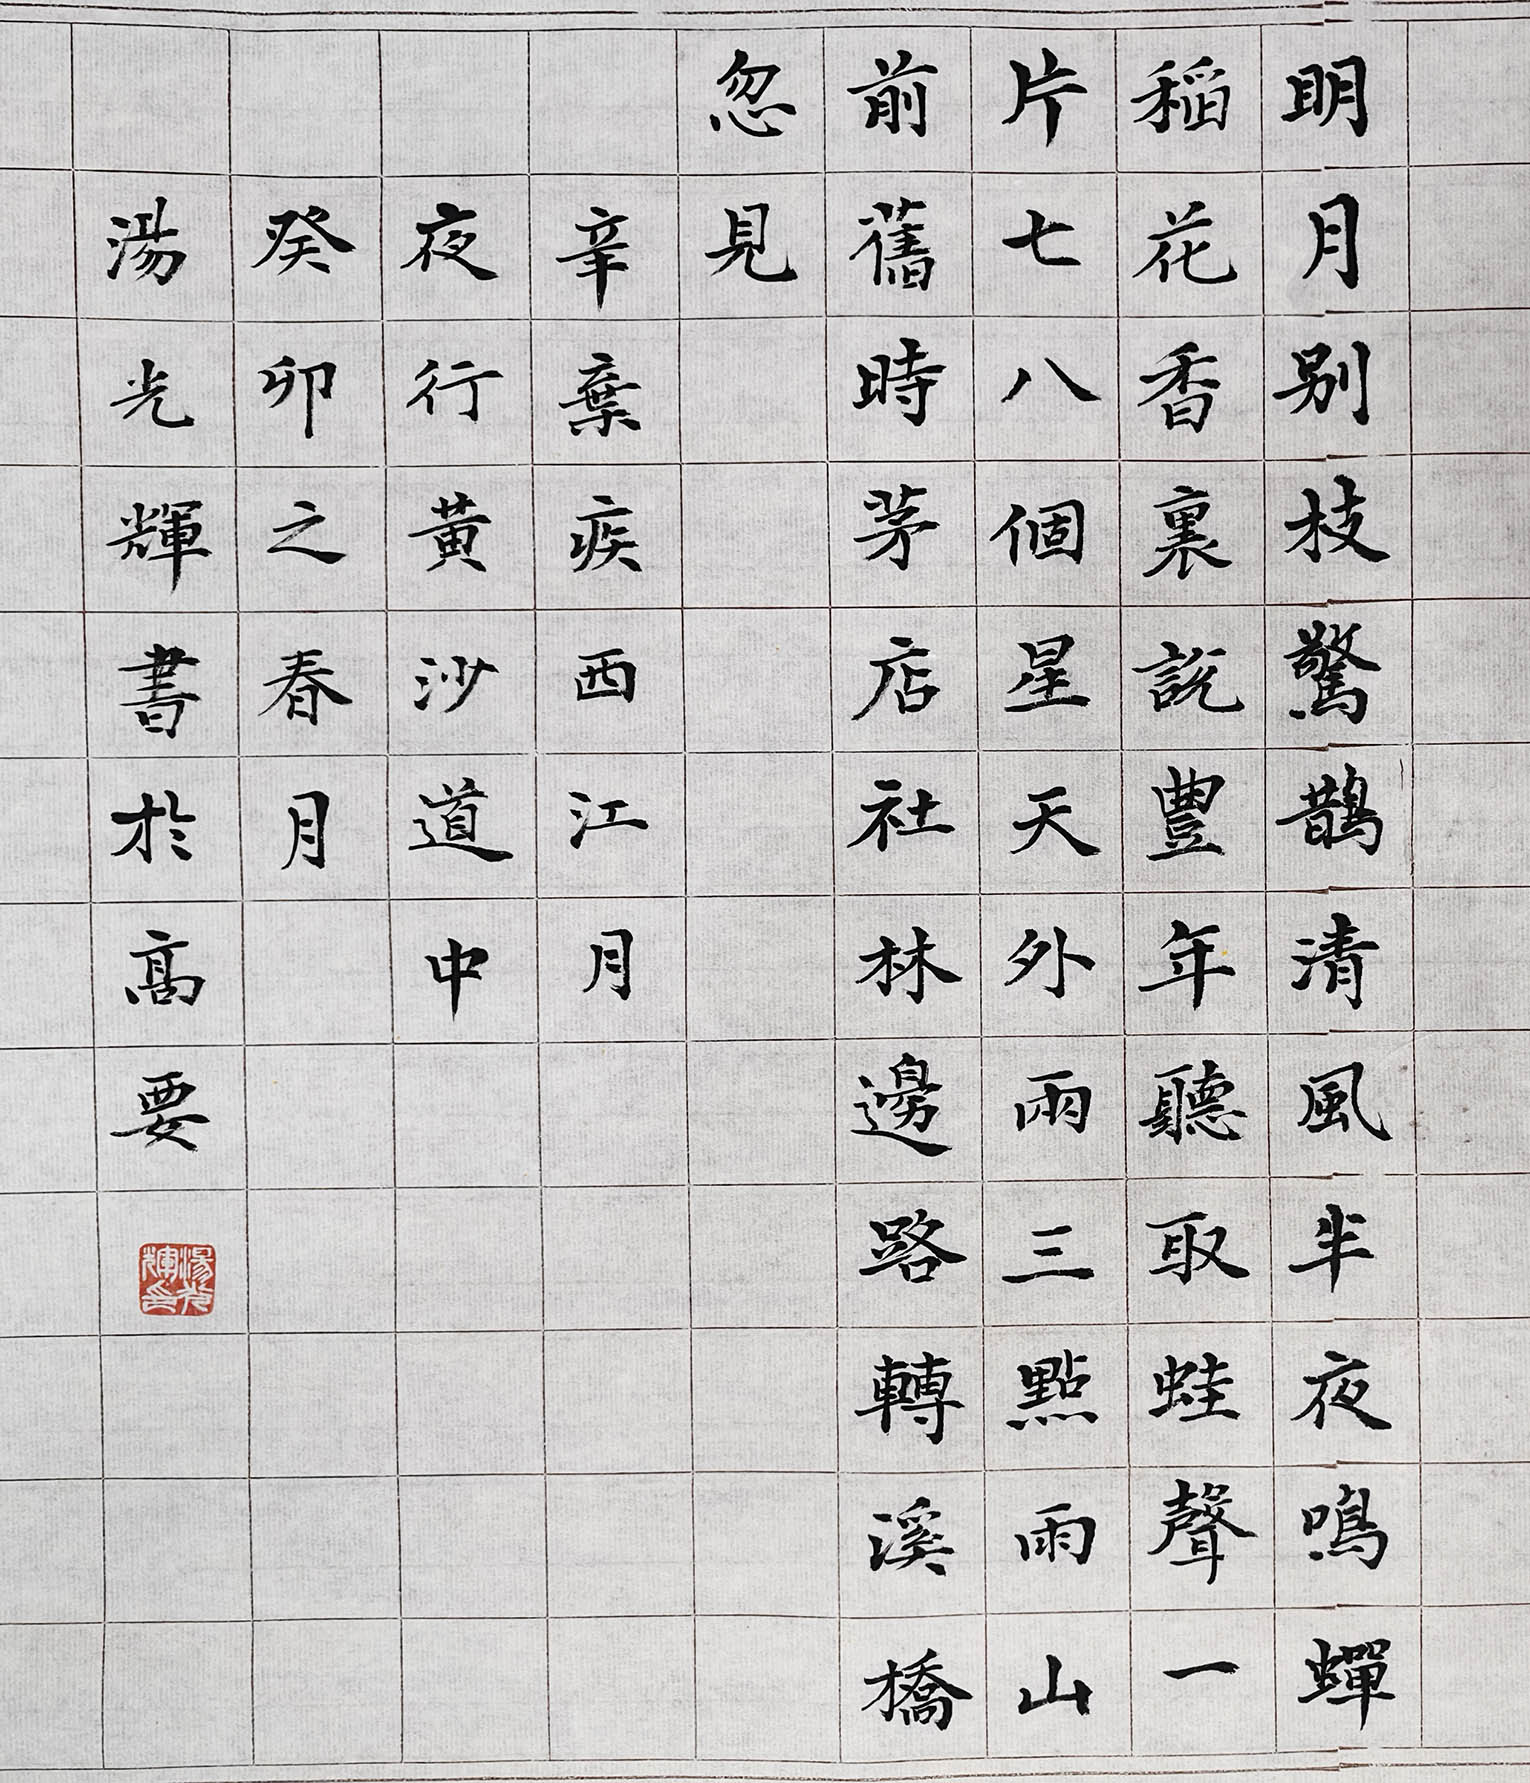 明月别枝驚鵲清風半夜鳴蟬
稻花香裏説豐年聽取蛙聲一
片七八個星天外兩三點雨山
前舊時茅店社林邊路轉溪橋
忽見
辛棄疾西江月
夜行黃沙道中
癸卯之春月
湯光輝書於高要
湯光輝印